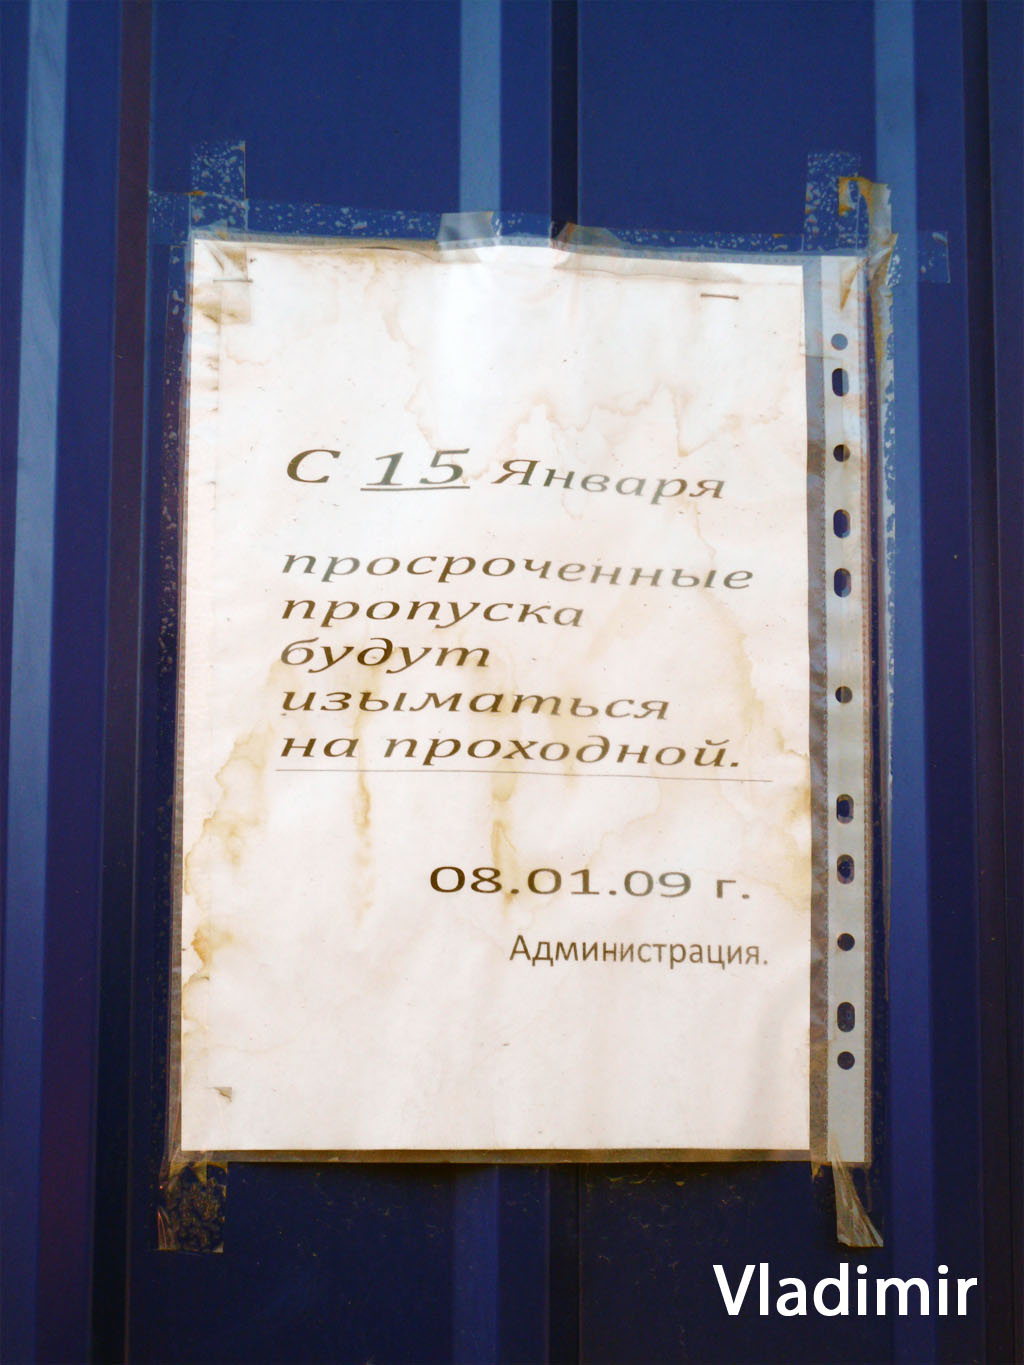 С 15 Января
просроченные
пропуска
будут
изыматься
на проходной.
08.01.09 г.
Администрация.
Vladimir